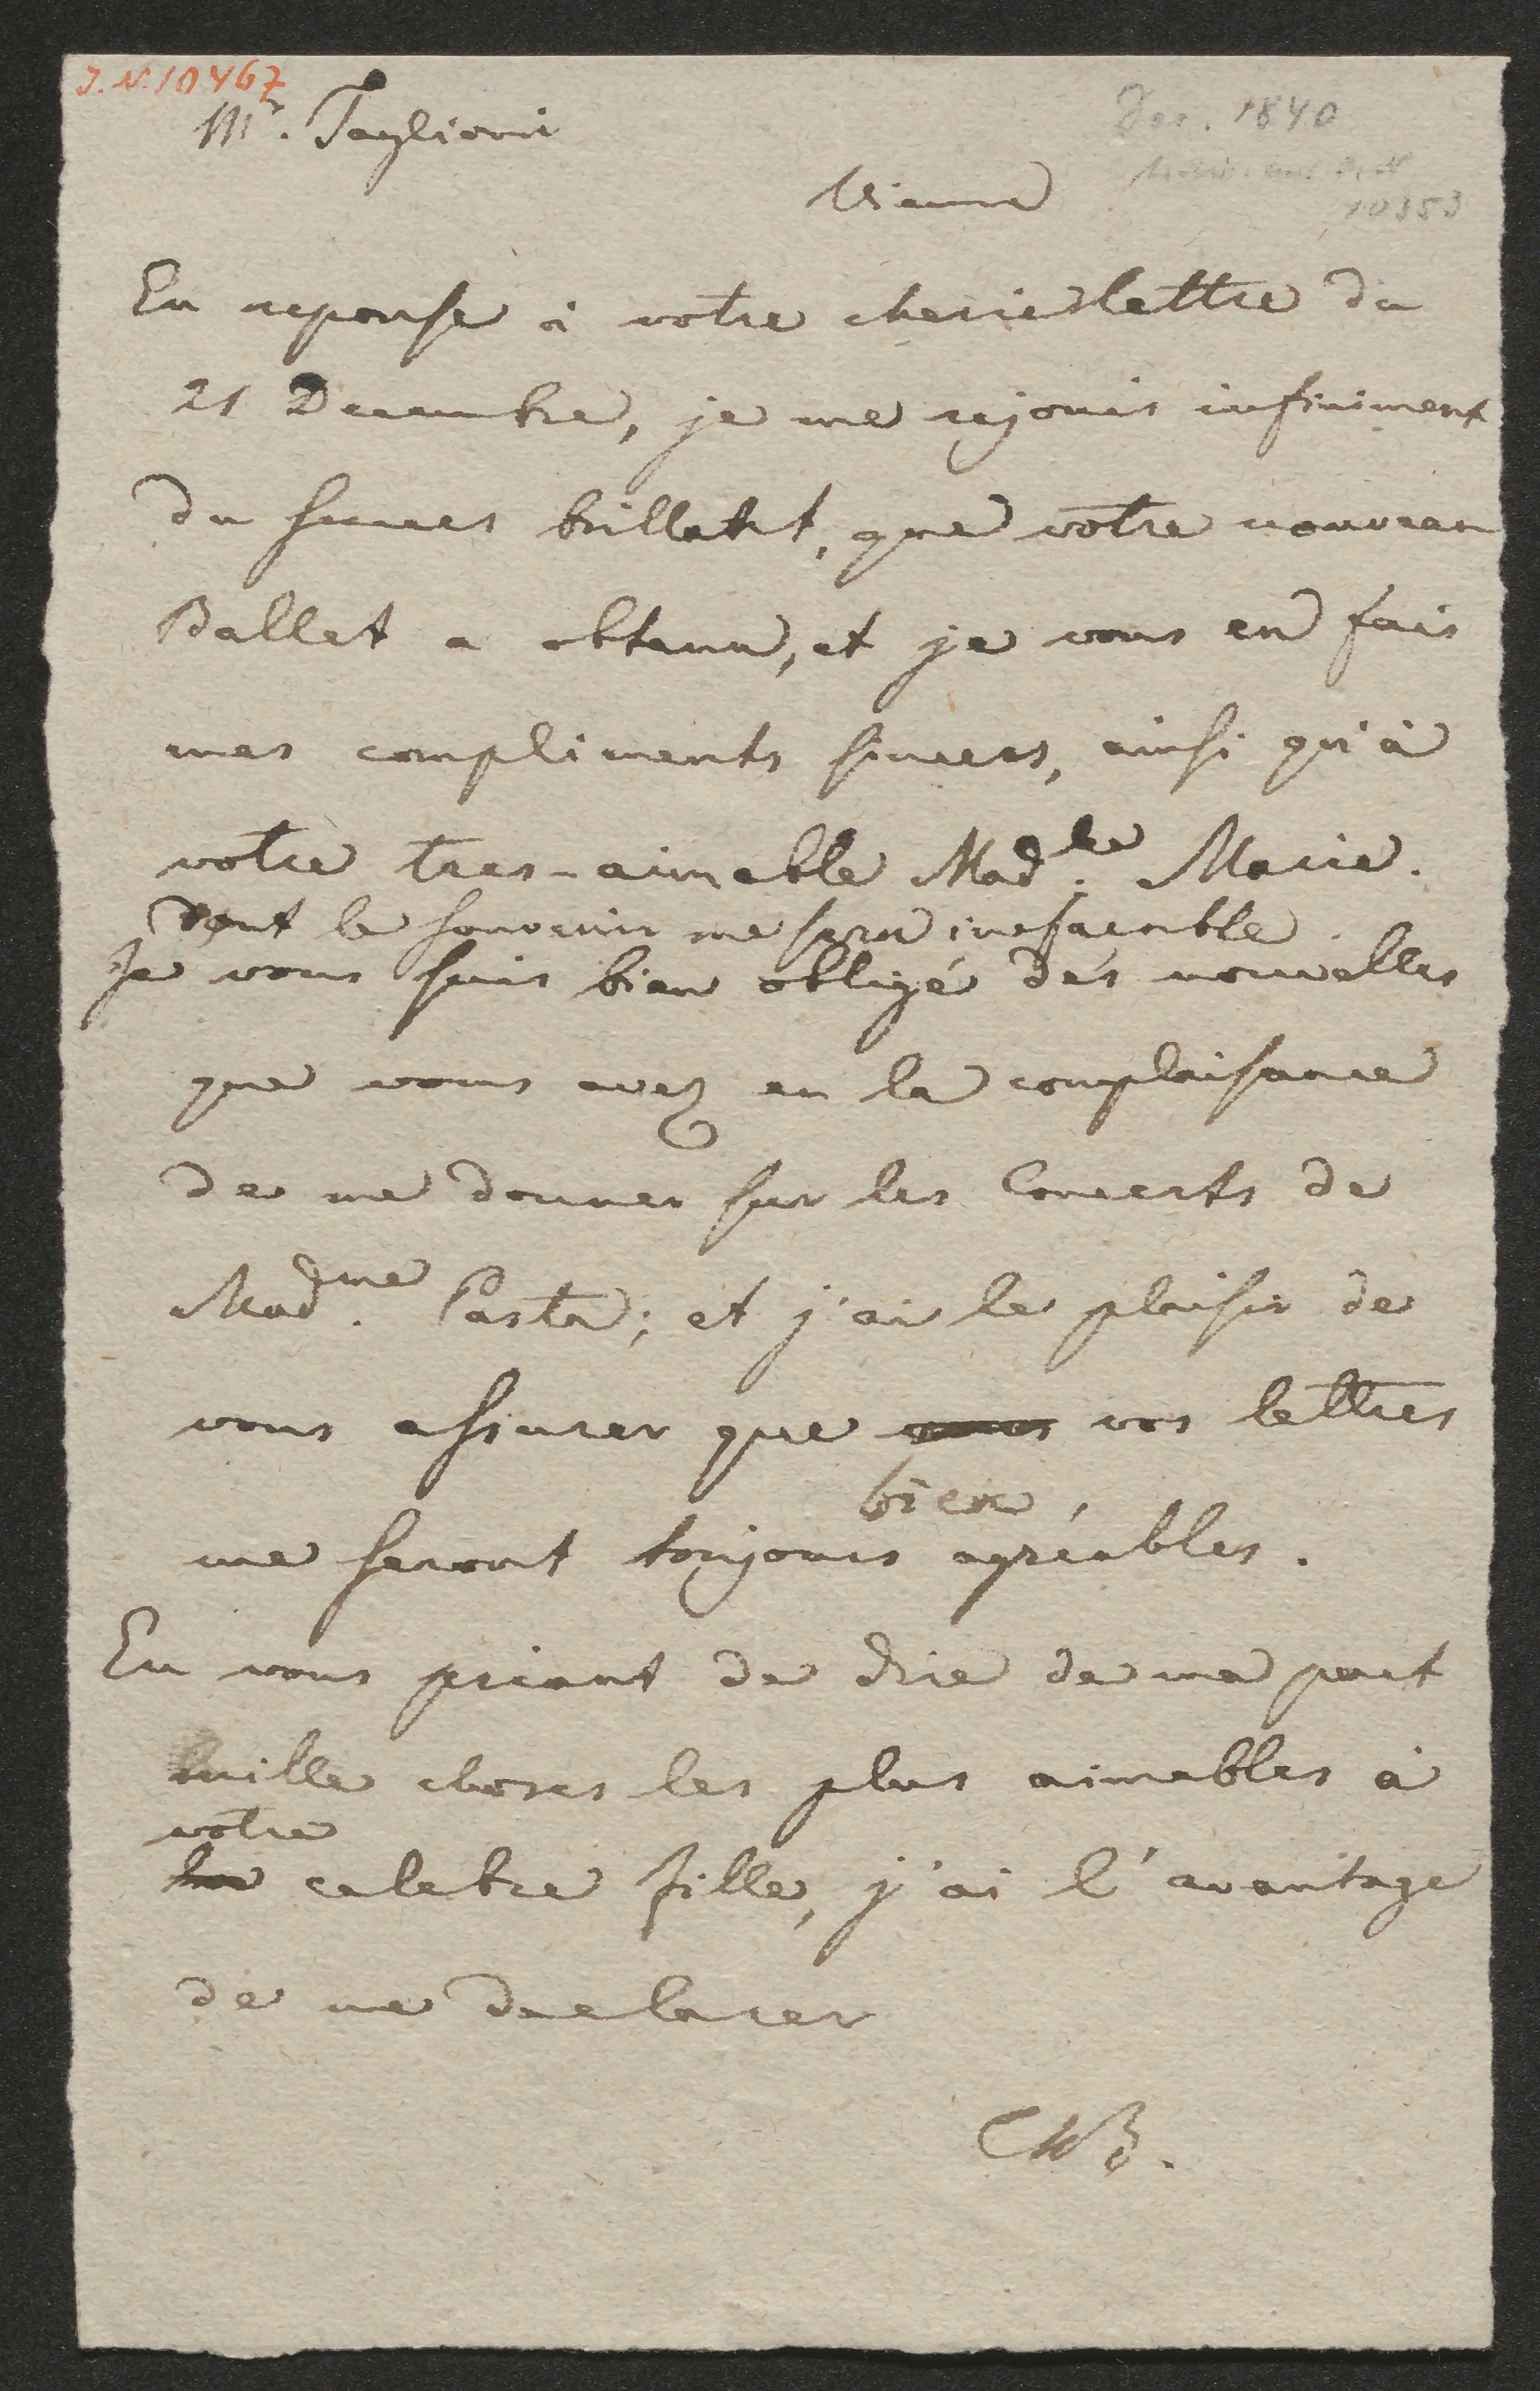 J.N. 10467
Mr. Taglioni
Dec. 1840
10353
Vienne
En reponse à votre cherie lettre du
21 Decembre, je me rejouis infiniment
du succes brillant, que votre nouveau
Ballet a obtenu, et je vous en fais
mes compliments sincers, ainsi qu'à
votre tres-aimable Mad.lle Marie.
dont le souvenir me sera inefacable.
Je vous suis bien obligé dés nouvelles
que vous avez eu la complaisance
de me donner sur les Concerts de
Mad.me Pasta; et j'ai le plaisir de
vous assurer que vos lettres
bien
me seront toujours agréables.
En vous priant de dire de ma part
mille choses les plus aimables à
votre
la celebre fille, j'ai l'avantage
de me declarer
CWB.